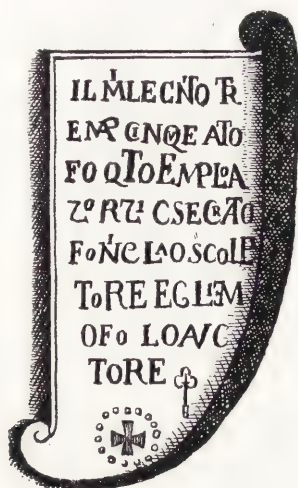 IL MILECNTO TR
EMP CINQE ATO
FO QTO EMPLOA
ZO RZI CSECRATO
FO NICLAO SCOLP
TORE E GLIEM
O FO LO AVC
TORE